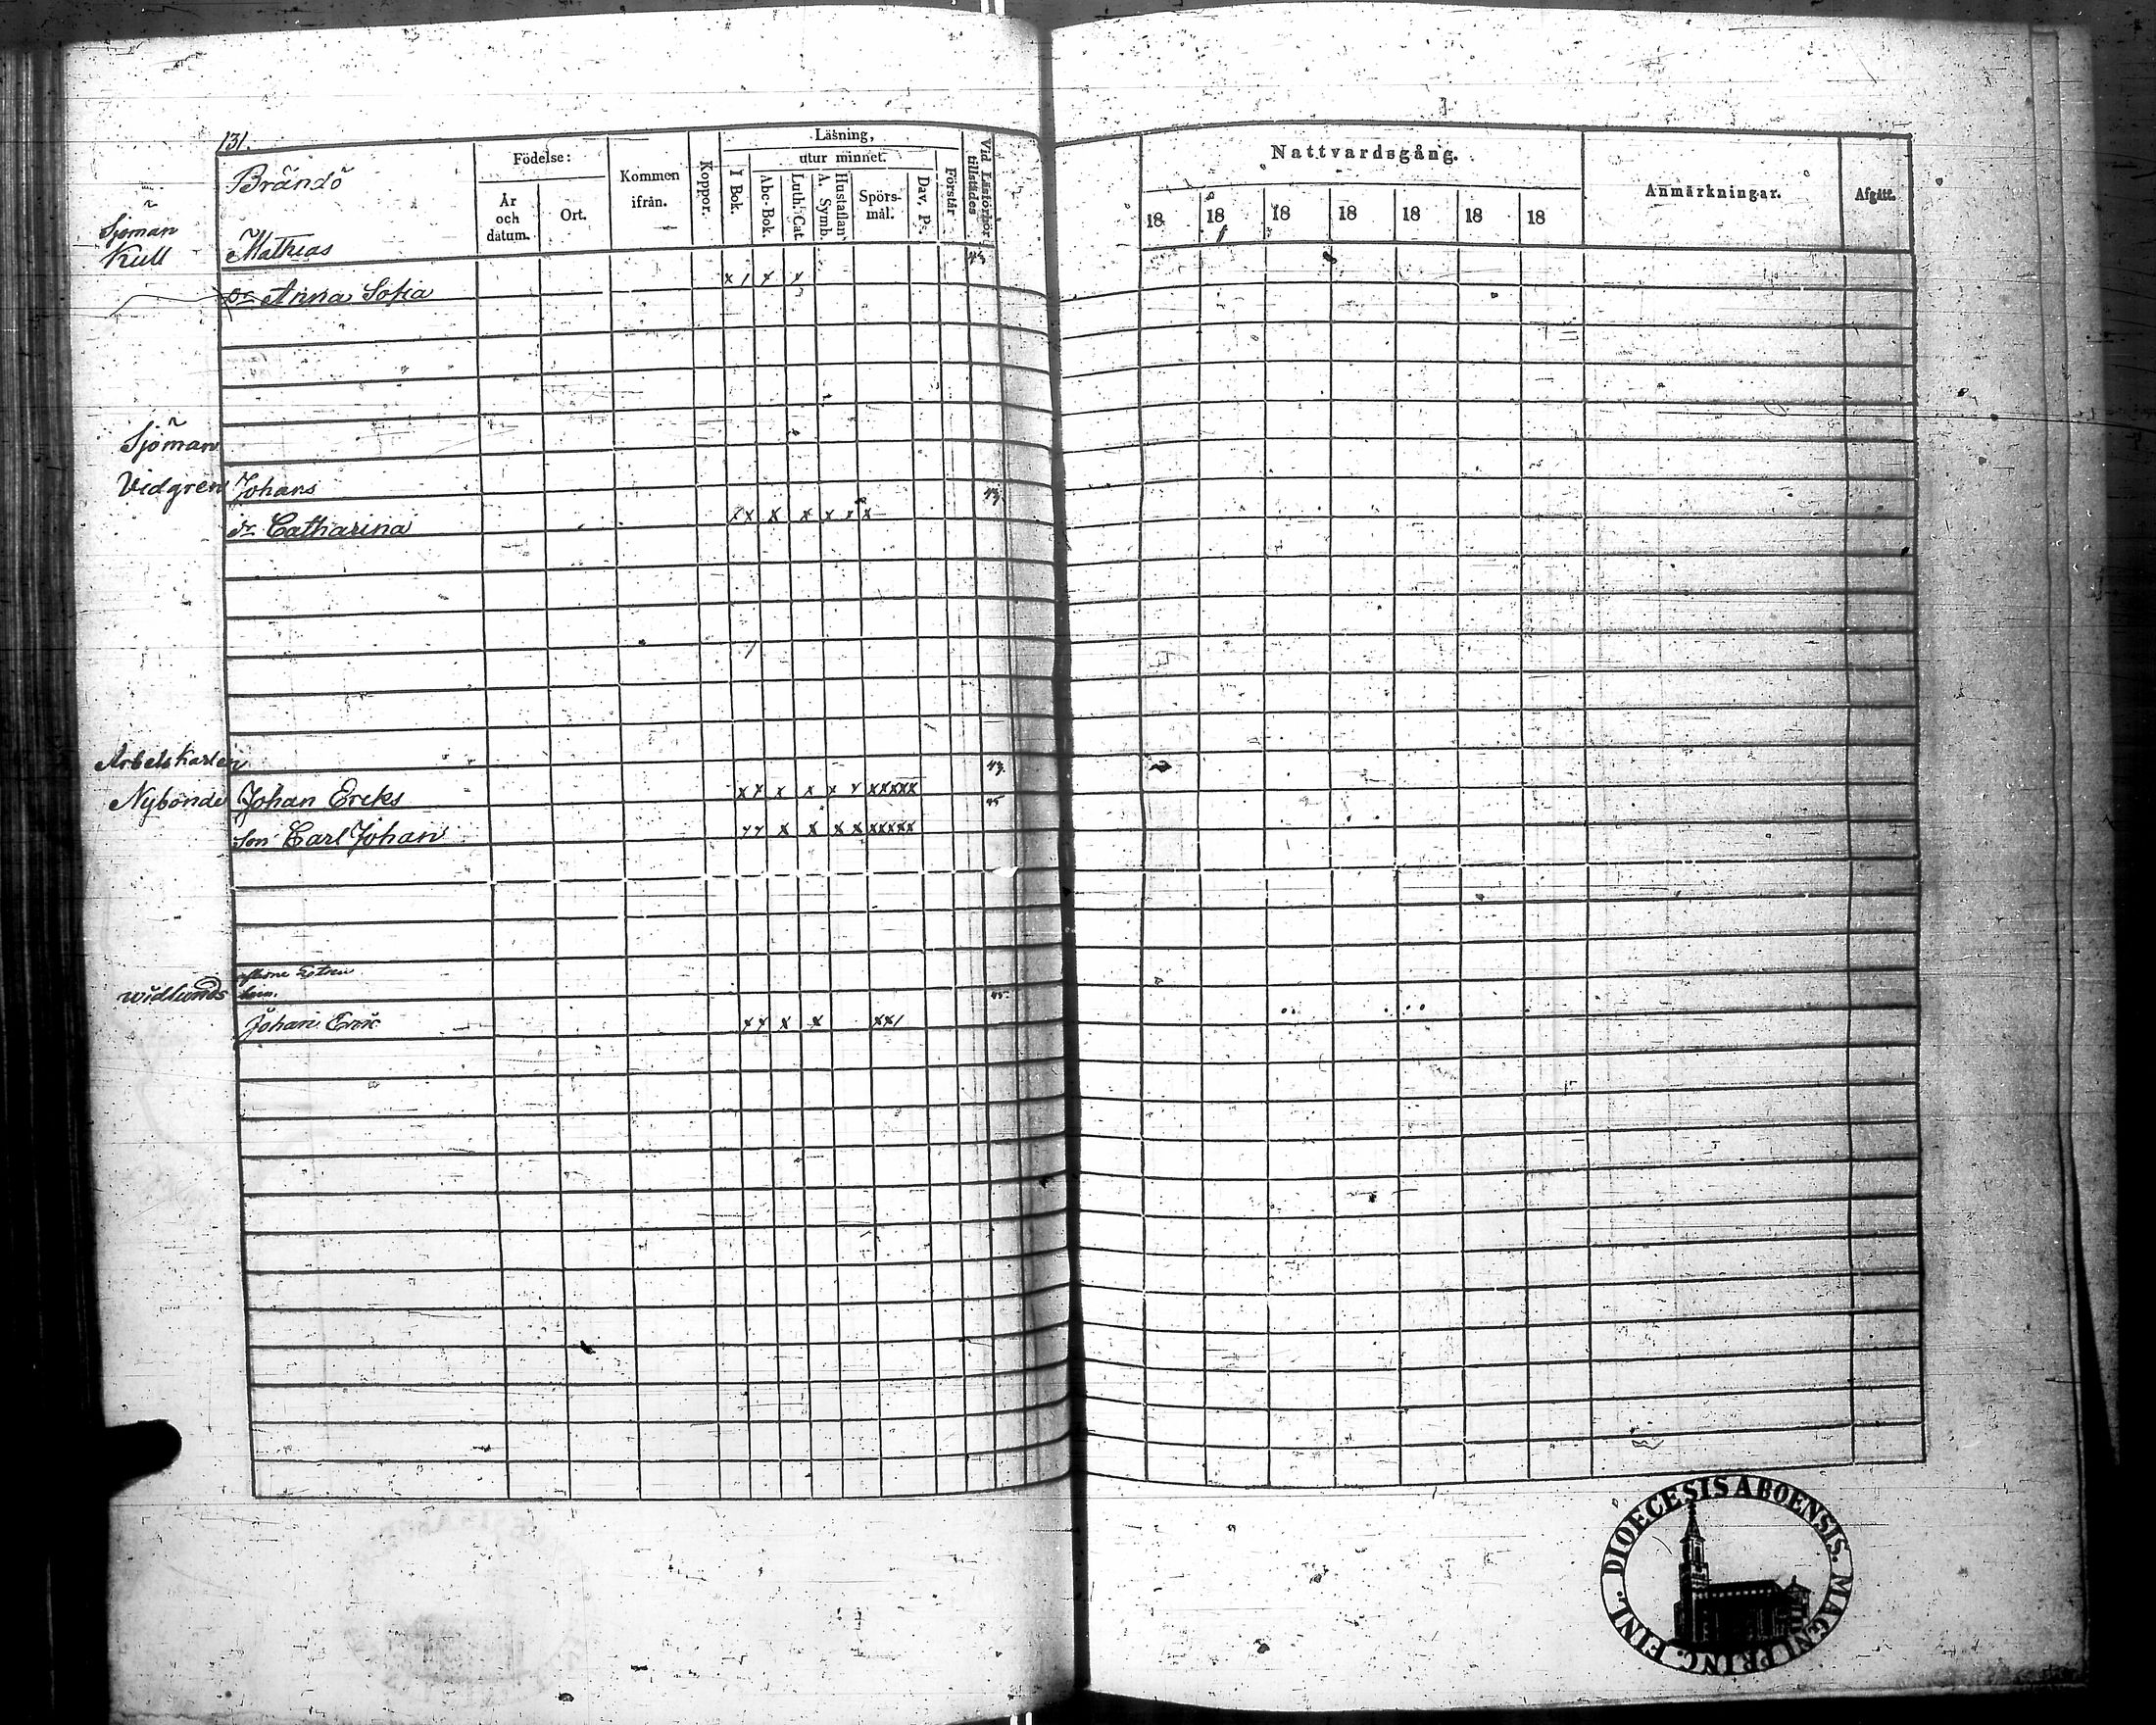 131.
Brändö
Födelse:
År och datum.
Ort.
Kommen ifrån.
Koppor.
Läsning,
utur minnet.
I Bok.
Abc-Bok.
Luth. Cat.
A. Symb.
Hustaflan
Spörsmål.
Dav. Ps.
Förstår
Vid Läsförhör tillstädes
Nattvardsgång.
18 18 18 18 18 18 18
Anmärkningar.
Afgått.
Sjöman
Kull Mathias
dr Anna Sofia x / x x
Sjöman
Vidgren Johans 43
dr Catharina x x x x x x x
Arbetskarlen 43.
Nybonde Johan Ereks x x x x x x xxxxx 45
Son Carl Johan x x x x x x xxxxx
Widlunds 45
Johan Eric x x x x xx/
DIOECESIS ABOENSIS. MAGNI PRINC. FINL.